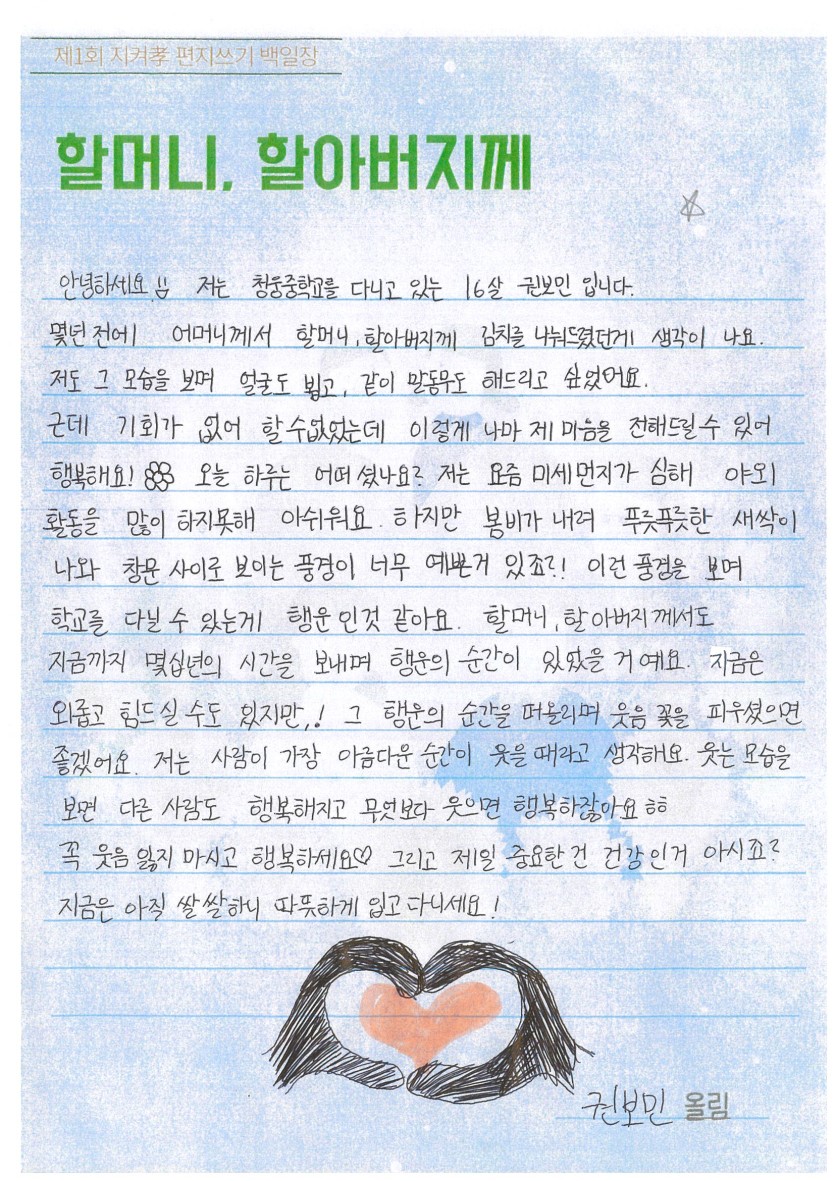 제1회 지켜孝 편지쓰기 백일장
할머니, 할아버지께
안녕하세요!! 저는 창웅중학교를 다니고 있는 16살 권보민 입니다.
몇년 전에 어머니께서 할머니, 할아버지께 김치를 나눠드렸던게 생각이 나요.
저도 그 모습을 보며 얼굴도 뵙고, 같이 말동무도 해드리고 싶었어요.
근데 기회가 없어 할수없었는데 이렇게 나마 제 마음을 전해드릴수 있어
행복해요! 오늘 하루는 어떠셨나요? 저는 요즘 미세먼지가 심해 야외
활동을 많이 하지못해 아쉬워요. 하지만 봄비가 내려 푸릇푸릇한 새싹이
나와 창문 사이로 보이는 풍경이 너무 예쁜거 있죠?! 이런 풍경을 보며
학교를 다닐 수 있는게 행운인것 같아요. 할머니, 할아버지께서도
지금까지 몇십년의 시간을 보내며 행운의 순간이 있었을 거예요. 지금은
외롭고 힘드실 수도 있지만,! 그 행운의 순간을 떠올리며 웃음 꽃을 피우셨으면
좋겠어요. 저는 사람이 가장 아름다운 순간이 웃을 때라고 생각해요. 웃는 모습을
보면 다른 사람도 행복해지고 무엇보다 웃으면 행복하잖아요ㅎㅎ
꼭 웃음 잃지 마시고 행복하세요♡ 그리고 제일 중요한건 건강인거 아시죠?
지금은 아직 쌀쌀하니 따뜻하게 입고 다니세요!
권보민 올림